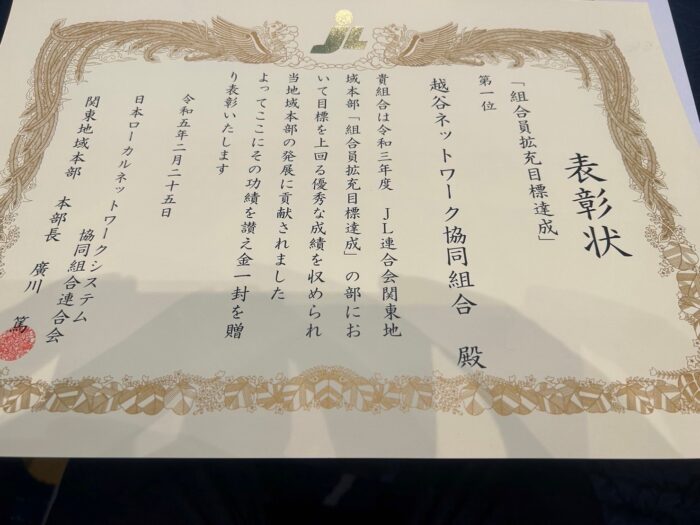 JL
表彰状
「組合員拡充目標達成」
第一位
越谷ネットワーク協同組合 殿
貴組合は令和三年度 JL連合会関東地
域本部「組合員拡充目標達成」の部にお
いて目標を上回る優秀な成績を収められ
当地域本部の発展に貢献されました
よってここにその功績を讃え金一封を贈
り表彰いたします
令和五年二月二十五日
日本ローカルネットワークシステム
協同組合連合会
関東地域本部 本部長 廣川 篤